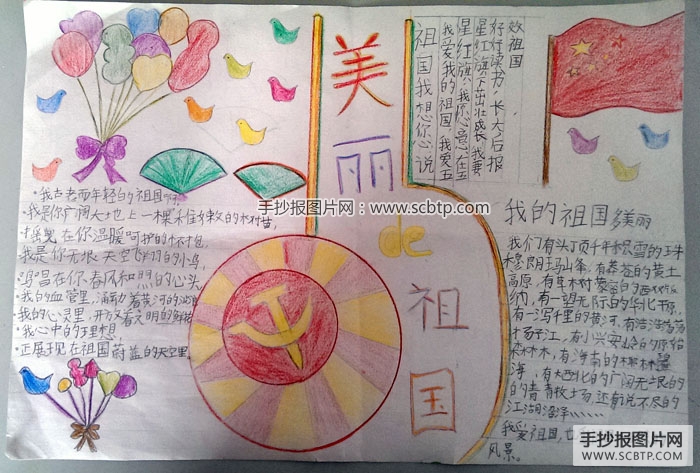 美丽de祖国
祖国我想你心说
我爱我的祖国,我爱五
星红旗,我愿意在五
星红旗下茁壮成长,我要
好好读书,长大后报
效祖国
手抄报图片网:www.scbtp.com
我古老而年轻的祖国啊
我是你广阔大地上一棵稚嫩的树苗,
摇曳在你温暖呵护的怀抱,
我是你无垠天空飞翔的小鸟,
鸣唱在你春风和煦的心头
我的血管里,满动着黄河的
我的心灵里,开放着文明的鲜花
我心中的理想
正展现在祖国蔚蓝的天空里
我的祖国多美丽
我们有头顶千年积雪的珠
穆朗玛山峰,有莽苍的黄土
高原,有草木树
纳,有一望无际的华北平原,
有一泻千里的黄河,有浩浩荡荡
扬子江,有小兴安岭的原始
森林,有海南的椰林
海,有大西北的广阔无垠的
的青青牧场,还有说不尽的
江湖海洋
我爱祖国,
风景。
手抄报图片网
WWW.SCBTP.COM